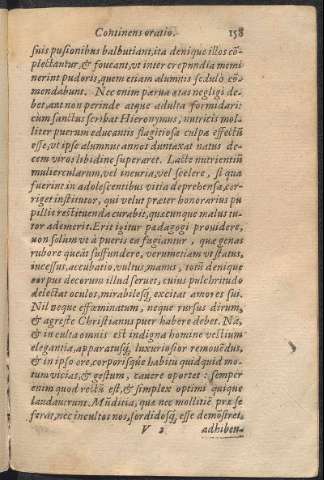 Continens oratio. 158
suis pusionibus balbutiant, ita denique illos cō-
plectantur, & foueant, vt inter crepundia memi
nerint pudoris, quem etiam alumnis sedulò cō-
mendabunt. Nec enim parua ætas negligi de-
bet, aut non perinde atque adulta formidari:
cum sanctus scribat Hieronymus, nutricis mol-
liter puerum educantis flagitiosa culpæ effectū
esse, vt ipse alumnus annos duntaxat natus de-
cem viros libidine superaret. Lacte nutrientiū
muliercularum, vel incuria, vel scelere, si qua
fuerint in adolescentibus vitia deprehensa, cor-
riget institutor, qui velut prætor honorarius pu
pillis restituenda curabit, quæcunque malus tu-
tor ademerit. Erit igitur pædagogi prouidere,
non solùm vt à pueris ea fugiantur, quæ genas
rubore queāt suffundere, verumetiam vt status,
incessus, accubatio, vultus, manus, totū denique
corpus decorum illud seruet, cuius pulchritudo
delectat oculos, mirabilesq́; excitat amores sui.
Nil neque effœminatum, neque rursus dirum,
& agreste Christianus puer habere debet. Nā,
& inculta omnis est indigna homine vestium
elegantia, apparatusq́; luxuriosior remouēdus,
& in ipso ore, corporisque habitu quid quid mo-
tum vicias, & gestum, cauere oportet: semper
enim quod rectū est, & simplex optimi quique
laudauerunt. Mūditia, quæ nec mollitiē præ se
ferat, nec incultos nos, sordidosq́; esse demōstret,
V 2 adhiben-